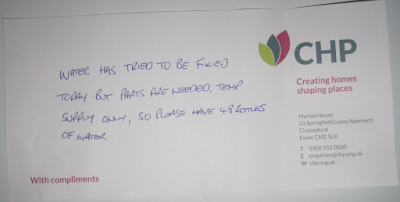 WATER HAS TRIED TO BE FIXED
TODAY BUT PARTS ARE NEEDED, TEMP
SUPPLY ONLY, SO PLEASE HAVE 48 BOTTLES
OF WATER
With compliments
CHP
Creating homes
shaping places
Myriad House
33 Springfield Lyons Approach
Chelmsford
Essex CM2 5LB
T 0300 555 0500
E enquiries@chp.org.uk
W chp.org.uk